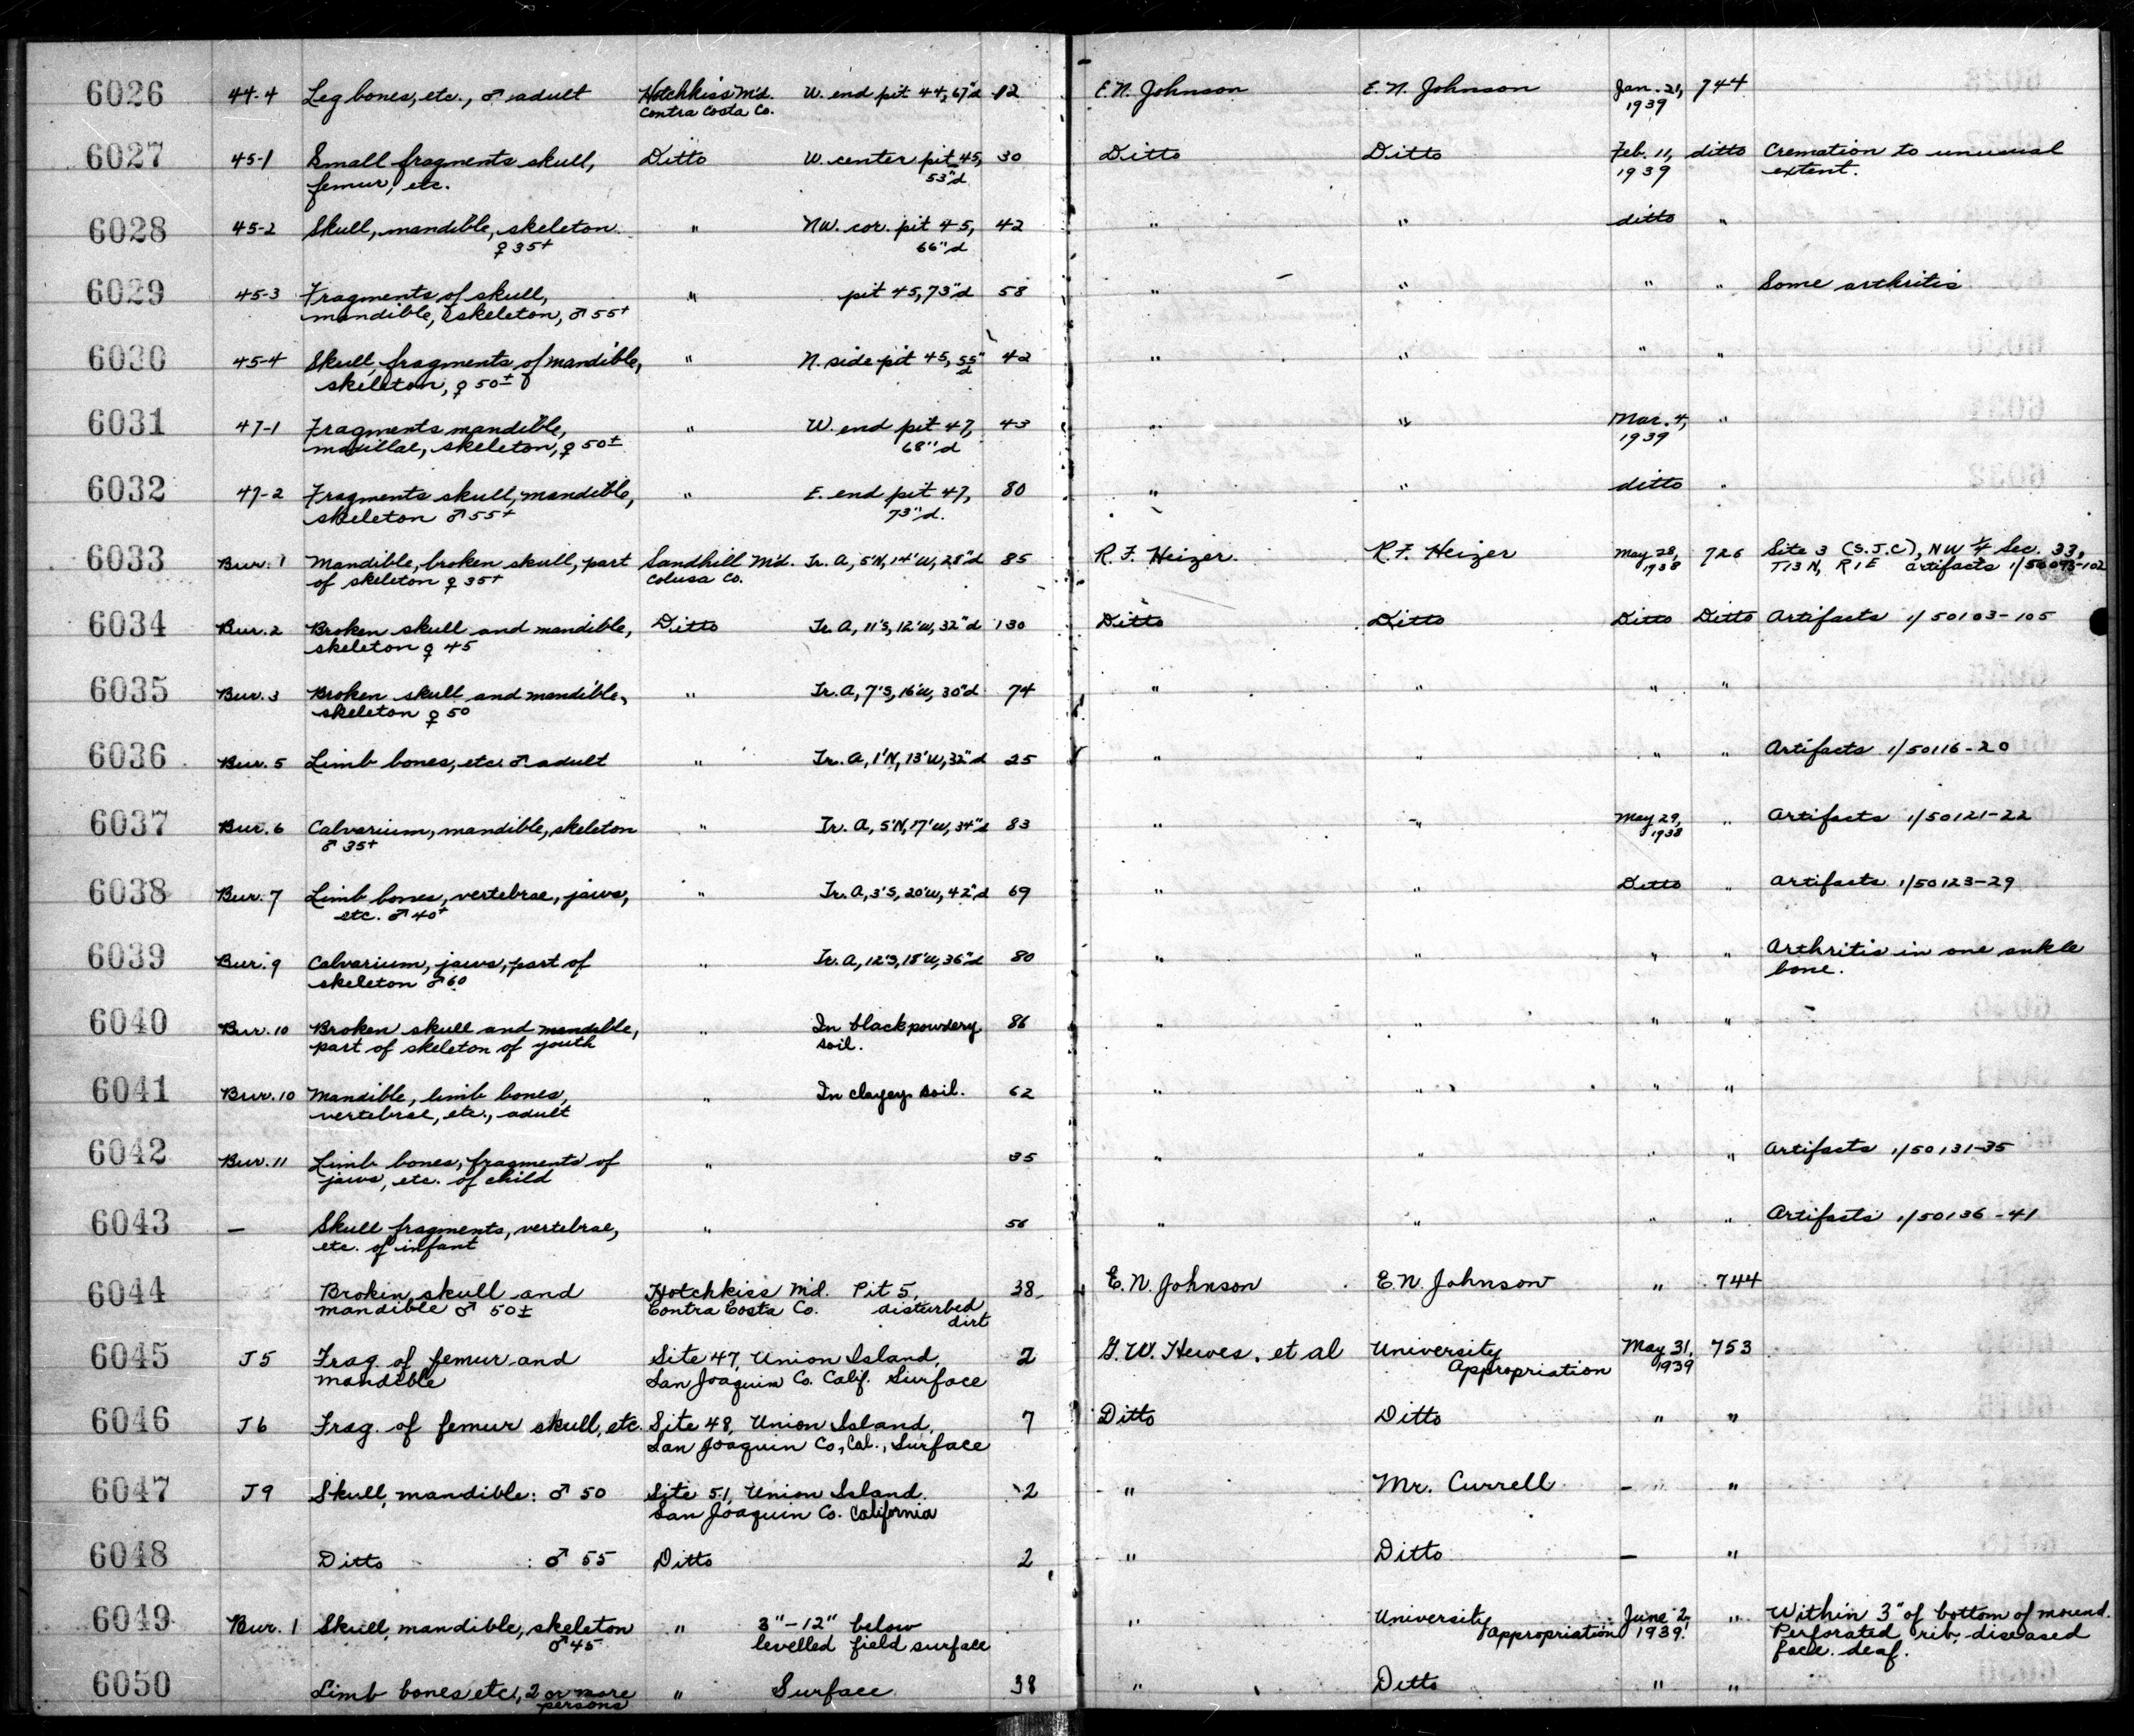 6026 44-4 Leg bones, etc., ♂ adult Hotchkiss M'd. W. end pit 44, 67"d 12 E. N. Johnson E. N. Johnson Jan. 21, 744
Contra Costa Co. 1939
6027 45-1 Small fragments skull, Ditto W. center pit 45, 30 Ditto Ditto Feb. 11, ditto Cremation to unusual
femur, etc. 53"d 1939 extent.
6028 45-2 Skull, mandible, skeleton " NW. cor. pit 45, 42 " " ditto "
♀ 35+ 66"d
6029 45-3 Fragments of skull, " pit 45, 73"d 58 " " " " Some arthritis
mandible, skeleton, ♂ 55+
6030 45-4 Skull, fragments of mandible, " N. side pit 45, 55" 42 " " " "
skeleton, ♀ 50± d
6031 47-1 Fragments mandible, " W. end pit 47, 43 " " Mar. 4, "
maxillae, skeleton, ♀ 50± 68"d 1939
6032 47-2 Fragments skull, mandible, " E. end pit 47, 80 " " ditto "
skeleton ♂ 55+ 73"d.
6033 Bur. 1 Mandible, broken skull, part Sandhill M'd. Tr. A, 5'N, 14'W, 28"d 85 R. F. Heizer R. F. Heizer May 28, 726 Site 3 (S.J.C), NW ¼ Sec. 33,
of skeleton ♀ 35+ Colusa Co. 1938 T13N, R1E artifacts 1/50093-102
6034 Bur. 2 Broken skull and mandible, Ditto Tr. A, 11'S, 12'W, 32"d 130 Ditto Ditto Ditto Ditto Artifacts 1/50103-105
skeleton ♀ 45
6035 Bur. 3 Broken skull and mandible, " Tr. A, 7'S, 16'W, 30"d 74 " " " "
skeleton ♀ 50
6036 Bur. 5 Limb bones, etc. ♂ adult " Tr. A, 1'N, 13'W, 32"d 25 " " " " Artifacts 1/50116-20
6037 Bur. 6 Calvarium, mandible, skeleton " Tr. A, 5'N, 17'W, 34"d 83 " " May 29, " Artifacts 1/50121-22
♂ 35+ 1938
6038 Bur. 7 Limb bones, vertebrae, jaws, " Tr. A, 3'S, 20'W, 42"d 69 " " Ditto " Artifacts 1/50123-29
etc. ♂ 40+
6039 Bur. 9 Calvarium, jaws, part of " Tr. A, 12'S, 18'W, 36"d 80 " " " " Arthritis in one ankle
skeleton ♂ 60 bone.
6040 Bur. 10 Broken skull and mandible, " In black powdery 86 " " " "
part of skeleton of youth soil.
6041 Bur. 10 Mandible, limb bones, " In clayey soil. 62 " " " "
vertebrae, etc., adult
6042 Bur. 11 Limb bones, fragments of " 35 " " " " Artifacts 1/50131-35
jaws, etc. of child
6043 — Skull fragments, vertebrae, " 56 " " " " Artifacts 1/50136-41
etc. of infant
6044 Broken skull and Hotchkiss M'd. Pit 5, 38 E. N. Johnson E. N. Johnson " 744
mandible ♂ 50± Contra Costa Co. disturbed
dirt
6045 J5 Frag. of femur and Site 47, Union Island, 2 G. W. Hewes, et al University May 31, 753
mandible San Joaquin Co. Calif. Surface Appropriation 1939
6046 J6 Frag. of femur skull, etc. Site 48, Union Island, 7 Ditto Ditto " "
San Joaquin Co., Cal., Surface
6047 J9 Skull, mandible: ♂ 50 Site 51, Union Island. 2 " Mr. Currell — "
San Joaquin Co. California
6048 Ditto : ♂ 55 Ditto 2 " Ditto — "
6049 Bur. 1 Skull, mandible, skeleton " 3"-12" below " University June 2, " Within 3" of bottom of mound.
♂ 45 levelled field surface Appropriation 1939. Perforated rib, diseased
face. deaf.
6050 Limb bones etc, 2 or more " Surface 38 " Ditto " "
persons